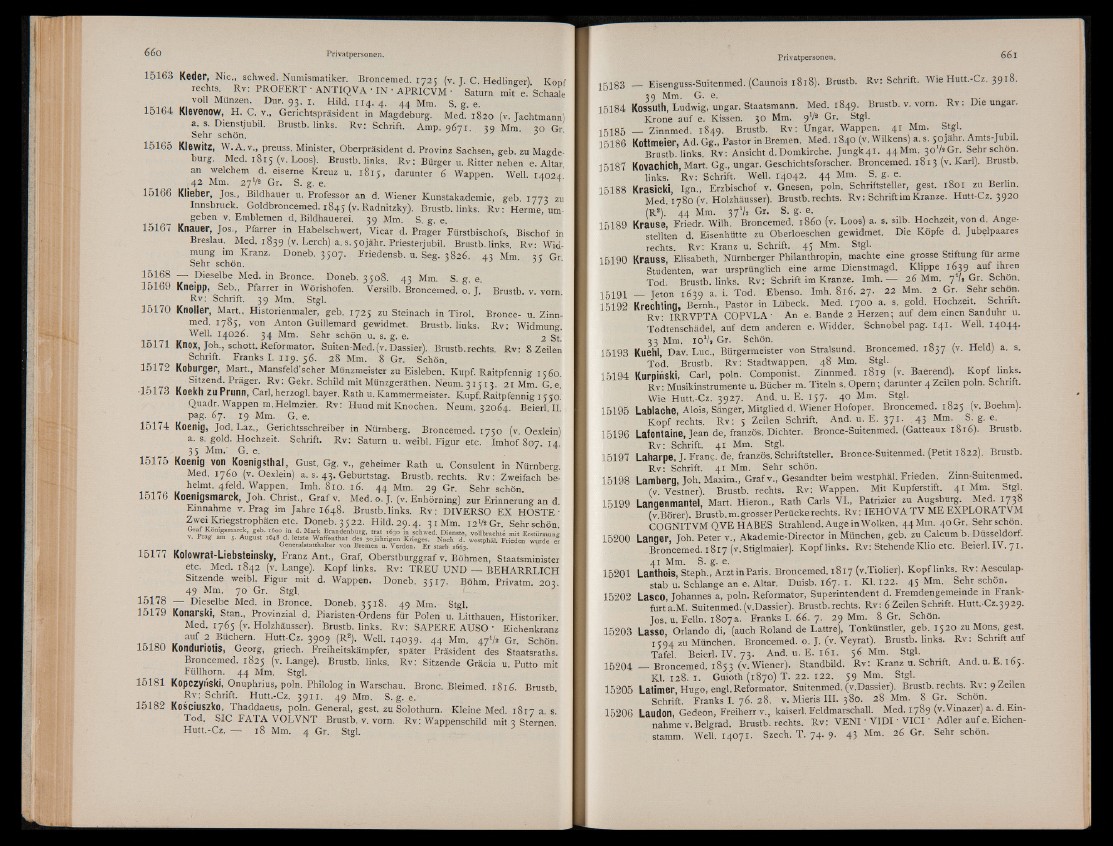 660 Privatpersonen.
15163 Keder, Nic., schwed. Numismatiker. Broncemed. 1725 (v. J. C. Hedlinger). Kopf
rechts. Rv: PROFERT · ANTIQVA · IN · APRICVM · Saturn mit e. Schaale
voll Münzen. Dur. 93. 1. Hild. 114. 4. 44 Mm. S. g. e.
15164 Klevenow, H. C. v., Gerichtspräsident in Magdeburg. Med. 1820 (v. Jachtmann)
a. s. Dienstjubil. Brustb. links. Rv: Schrift. Amp. 9671. 39 Mm. 30 Gr.
Sehr schön.
15165 Klewitz, W. A. v., preuss. Minister, Oberpräsident d. Provinz Sachsen, geb. zu Magde-
burg. Med. 1815 (v. Loos). Brustb. links. Rv: Bürger u. Ritter neben e. Altar,
an welchem d. eiserne Kreuz u. 1815, darunter 6 Wappen. Well. 14024.
42 Mm. 27½ Gr. S. g. e.
15166 Klieber, Jos., Bildhauer u. Professor an d. Wiener Kunstakademie, geb. 1773 zu
Innsbruck. Goldbroncemed. 1845 (v. Radnitzky). Brustb. links. Rv: Herme, um-
geben v. Emblemen d. Bildhauerei. 39 Mm. S. g. e.
15167 Knauer, Jos., Pfarrer in Habelschwert, Vicar d. Prager Fürstbischofs, Bischof in
Breslau. Med. 1839 (v. Lerch) a. s. 50jähr. Priesterjubil. Brustb. links. Rv: Wid-
mung im Kranz. Doneb. 3507. Friedensb. u. Seg. 3826. 43 Mm. 35 Gr.
Sehr schön.
15168 — Dieselbe Med. in Bronce. Doneb. 3508. 43 Mm. S. g. e.
15169 Kneipp, Seb., Pfarrer in Wörishofen. Versilb. Broncemed. o. J. Brustb. v. vorn.
Rv: Schrift. 39 Mm. Stgl.
15170 Knoller, Mart., Historienmaler, geb. 1725 zu Steinach in Tirol. Bronce- u. Zinn-
med. 1785, von Anton Guillemard gewidmet. Brustb. links. Rv: Widmung.
Well. 14026. 34 Mm. Sehr schön u. s. g. e. 2 St.
15171 Knox, Joh., schott. Reformator. Suiten-Med. (v. Dassier). Brustb. rechts. Rv: 8 Zeilen
Schrift. Franks I. 119. 56. 28 Mm. 8 Gr. Schön.
15172 Koburger, Mart., Mansfeld'scher Münzmeister zu Eisleben. Kupf. Raitpfennig 1560.
Sitzend. Präger. Rv: Gekr. Schild mit Münzgeräthen. Neum. 31513. 21 Mm. G. e.
15173 Koekh zu Prunn, Carl, herzogl. bayer. Rath u. Kammermeister. Kupf. Raitpfennig 1550.
Quadr. Wappen m. Helmzier. Rv: Hund mit Knochen. Neum. 32064. Beierl. II.
pag. 67. 19 Mm. G. e.
15174 Koenig, Jod. Laz., Gerichtsschreiber in Nürnberg. Broncemed. 1750 (v. Oexlein)
a. s. gold. Hochzeit. Schrift. Rv: Saturn u. weibl. Figur etc. Imhof 807. 14.
35 Mm. G. e.
15175 Koenig von Koenigsthal, Gust. Gg. v., geheimer Rath u. Consulent in Nürnberg.
Med. 1760 (v. Oexlein) a. s. 43. Geburtstag. Brustb. rechts. Rv: Zweifach be-
helmt. 4feld. Wappen. Imh. 810. 16. 44 Mm. 29 Gr. Sehr schön.
15176 Koenigsmarck, Joh. Christ., Graf v. Med. o. J. (v. Enhörning) zur Erinnerung an d.
Einnahme v. Prag im Jahre 1648. Brustb. links. Rv: DIVERSO EX HOSTE ·
Zwei Kriegstrophäen etc. Doneb. 3522. Hild. 29. 4. 31 Mm. 12½ Gr. Sehr schön.
Graf Königsmarck, geb. 1600 in d. Mark Brandenburg, trat 1630 in schwed. Dienste, vollbrachte mit Erstürmung
v. Prag am 5. August 1648 d. letzte Waffenthat des 30jährigen Krieges. Nach d. westphäl. Frieden wurde er
Generalstatthalter von Bremen u. Verden. Er starb 1663.
15177 Kolowrat-Liebsteinsky, Franz Ant., Graf, Oberstburggraf v. Böhmen, Staatsminister
etc. Med. 1842 (v. Lange). Kopf links. Rv: TREU UND — BEHARRLICH
Sitzende weibl. Figur mit d. Wappen. Doneb. 3517. Böhm. Privatm. 203.
49 Mm. 70 Gr. Stgl.
15178 — Dieselbe Med. in Bronce. Doneb. 3518. 49 Mm. Stgl.
15179 Konarski, Stan., Provinzial d. Piaristen-Ordens für Polen u. Litthauen, Historiker.
Med. 1765 (v. Holzhäusser). Brustb. links. Rv: SAPERE AUSO · Eichenkranz
auf 2 Büchern. Hutt-Cz. 3909 (R⁸). Well. 14039. 44 Mm. 47½ Gr. Schön.
15180 Konduriotis, Georg, griech. Freiheitskämpfer, später Präsident des Staatsraths.
Broncemed. 1825 (v. Lange). Brustb. links. Rv: Sitzende Gräcia u. Putto mit
Füllhorn. 44 Mm. Stgl.
15181 Kopczyński, Onuphrius, poln. Philolog in Warschau. Bronc. Bleimed. 1816. Brustb.
Rv: Schrift. Hutt.-Cz. 3911. 49 Mm. S. g. e.
15182 Kościuszko, Thaddaeus, poln. General, gest. zu Solothurn. Kleine Med. 1817 a. s.
Tod. SIC FATA VOLVNT Brustb. v. vorn. Rv: Wappenschild mit 3 Sternen.
Hutt.-Cz. — 18 Mm. 4 Gr. Stgl.
Privatpersonen. 661
15183 — Eisenguss-Suitenmed. (Caunois 1818). Brustb. Rv: Schrift. Wie Hutt.-Cz. 3918.
39 Mm. G. e.
15184 Kossuth, Ludwig, ungar. Staatsmann. Med. 1849. Brustb. v. vorn. Rv: Die ungar.
Krone auf e. Kissen. 30 Mm. 9½ Gr. Stgl.
15185 — Zinnmed. 1849. Brustb. Rv: Ungar. Wappen. 41 Mm. Stgl.
15186 Kottmeier, Ad. Gg., Pastor in Bremen. Med. 1840 (v. Wilkens) a. s. 50jähr. Amts-Jubil.
Brustb. links. Rv: Ansicht d. Domkirche. Jungk 41. 44 Mm. 30½ Gr. Sehr schön.
15187 Kovachich, Mart. Gg., ungar. Geschichtsforscher. Broncemed. 1813 (v. Karl). Brustb.
links. Rv: Schrift. Well. 14042. 44 Mm. S. g. e.
15188 Krasicki, Ign., Erzbischof v. Gnesen, poln. Schriftsteller, gest. 1801 zu Berlin.
Med. 1780 (v. Holzhäusser). Brustb. rechts. Rv: Schrift im Kranze. Hutt-Cz. 3920
(R⁸). 44 Mm. 37½ Gr. S. g. e.
15189 Krause, Friedr. Wilh. Broncemed. 1860 (v. Loos) a. s. silb. Hochzeit, von d. Ange-
stellten d. Eisenhütte zu Oberloeschen gewidmet. Die Köpfe d. Jubelpaares
rechts. Rv: Kranz u. Schrift. 45 Mm. Stgl.
15190 Krauss, Elisabeth, Nürnberger Philanthropin, machte eine grosse Stiftung für arme
Studenten, war ursprünglich eine arme Dienstmagd. Klippe 1639 auf ihren
Tod. Brustb. links. Rv: Schrift im Kranze. Imh. — 26 Mm. 7½ Gr. Schön.
15191 — Jeton 1639 a. i. Tod. Ebenso. Imh. 816. 27. 22 Mm. 2 Gr. Sehr schön.
15192 Krechting, Bernh., Pastor in Lübeck. Med. 1700 a. s. gold. Hochzeit. Schrift.
Rv: IRRVPTA COPVLA · An e. Bande 2 Herzen; auf dem einen Sanduhr u.
Todtenschädel, auf dem anderen e. Widder. Schnobel pag. 141. Well. 14044.
33 Mm. 10½ Gr. Schön.
15193 Kuehl, Dav. Luc., Bürgermeister von Stralsund. Broncemed. 1837 (v. Held) a. s.
Tod. Brustb. Rv: Stadtwappen. 48 Mm. Stgl.
15194 Kurpiński, Carl, poln. Componist. Zinnmed. 1819 (v. Baerend). Kopf links.
Rv: Musikinstrumente u. Bücher m. Titeln s. Opern; darunter 4 Zeilen poln. Schrift.
Wie Hutt.-Cz. 3927. And. u. E. 157. 40 Mm. Stgl.
15195 Lablache, Alois, Sänger, Mitglied d. Wiener Hofoper. Broncemed. 1825 (v. Boehm).
Kopf rechts. Rv: 5 Zeilen Schrift. And. u. E. 371. 43 Mm. S. g. e.
15196 Lafontaine, Jean de, französ. Dichter. Bronce-Suitenmed. (Gatteaux 1816). Brustb.
Rv: Schrift. 41 Mm. Stgl.
15197 Laharpe, J. Franç. de, französ. Schriftsteller. Bronce-Suitenmed. (Petit 1822). Brustb.
Rv: Schrift. 41 Mm. Sehr schön.
15198 Lamberg, Joh. Maxim., Graf v., Gesandter beim westphäl. Frieden. Zinn-Suitenmed.
(v. Vestner). Brustb. rechts. Rv: Wappen. Mit Kupferstift. 41 Mm. Stgl.
15199 Langenmantel, Mart. Hieron., Rath Carls VI., Patrizier zu Augsburg. Med. 1738
(v. Börer). Brustb. m. grosser Perücke rechts. Rv: IEHOVA TV ME EXPLORATVM
COGNITVM QVE HABES Strahlend. Auge in Wolken. 44 Mm. 40 Gr. Sehr schön.
15200 Langer, Joh. Peter v., Akademie-Director in München, geb. zu Calcum b. Düsseldorf.
Broncemed. 1817 (v. Stiglmaier). Kopf links. Rv: Stehende Klio etc. Beierl. IV. 71.
41 Mm. S. g. e.
15201 Lantheis, Steph., Arzt in Paris. Broncemed. 1817 (v. Tiolier). Kopf links. Rv: Aesculap-
stab u. Schlange an e. Altar. Duisb. 167. 1. Kl. 122. 45 Mm. Sehr schön.
15202 Lasco, Johannes a, poln. Reformator, Superintendent d. Fremdengemeinde in Frank-
furt a. M. Suitenmed. (v. Dassier). Brustb. rechts. Rv: 6 Zeilen Schrift. Hutt.-Cz. 3929.
Jos. u. Felln. 1807a. Franks I. 66. 7. 29 Mm. 8 Gr. Schön.
15203 Lasso, Orlando di, (auch Roland de Lattre), Tonkünstler, geb. 1520 zu Mons, gest.
1594 zu München. Broncemed. o. J. (v. Veyrat). Brustb. links. Rv: Schrift auf
Tafel. Beierl. IV. 73. And. u. E. 161. 56 Mm. Stgl.
15204 — Broncemed. 1853 (v. Wiener). Standbild. Rv: Kranz u. Schrift. And. u. E. 165.
Kl. 128. 1. Guioth (1870) T. 22. 122. 59 Mm. Stgl.
15205 Latimer, Hugo, engl. Reformator. Suitenmed. (v. Dassier). Brustb. rechts. Rv: 9 Zeilen
Schrift. Franks I. 76. 28. v. Mieris III. 380. 28 Mm. 8 Gr. Schön.
15206 Laudon, Gedeon, Freiherr v., kaiserl. Feldmarschall. Med. 1789 (v. Vinazer) a. d. Ein-
nahme v. Belgrad. Brustb. rechts. Rv: VENI · VIDI · VICI · Adler auf e. Eichen-
stamm. Well. 14071. Szech. T. 74. 9. 43 Mm. 26 Gr. Sehr schön.